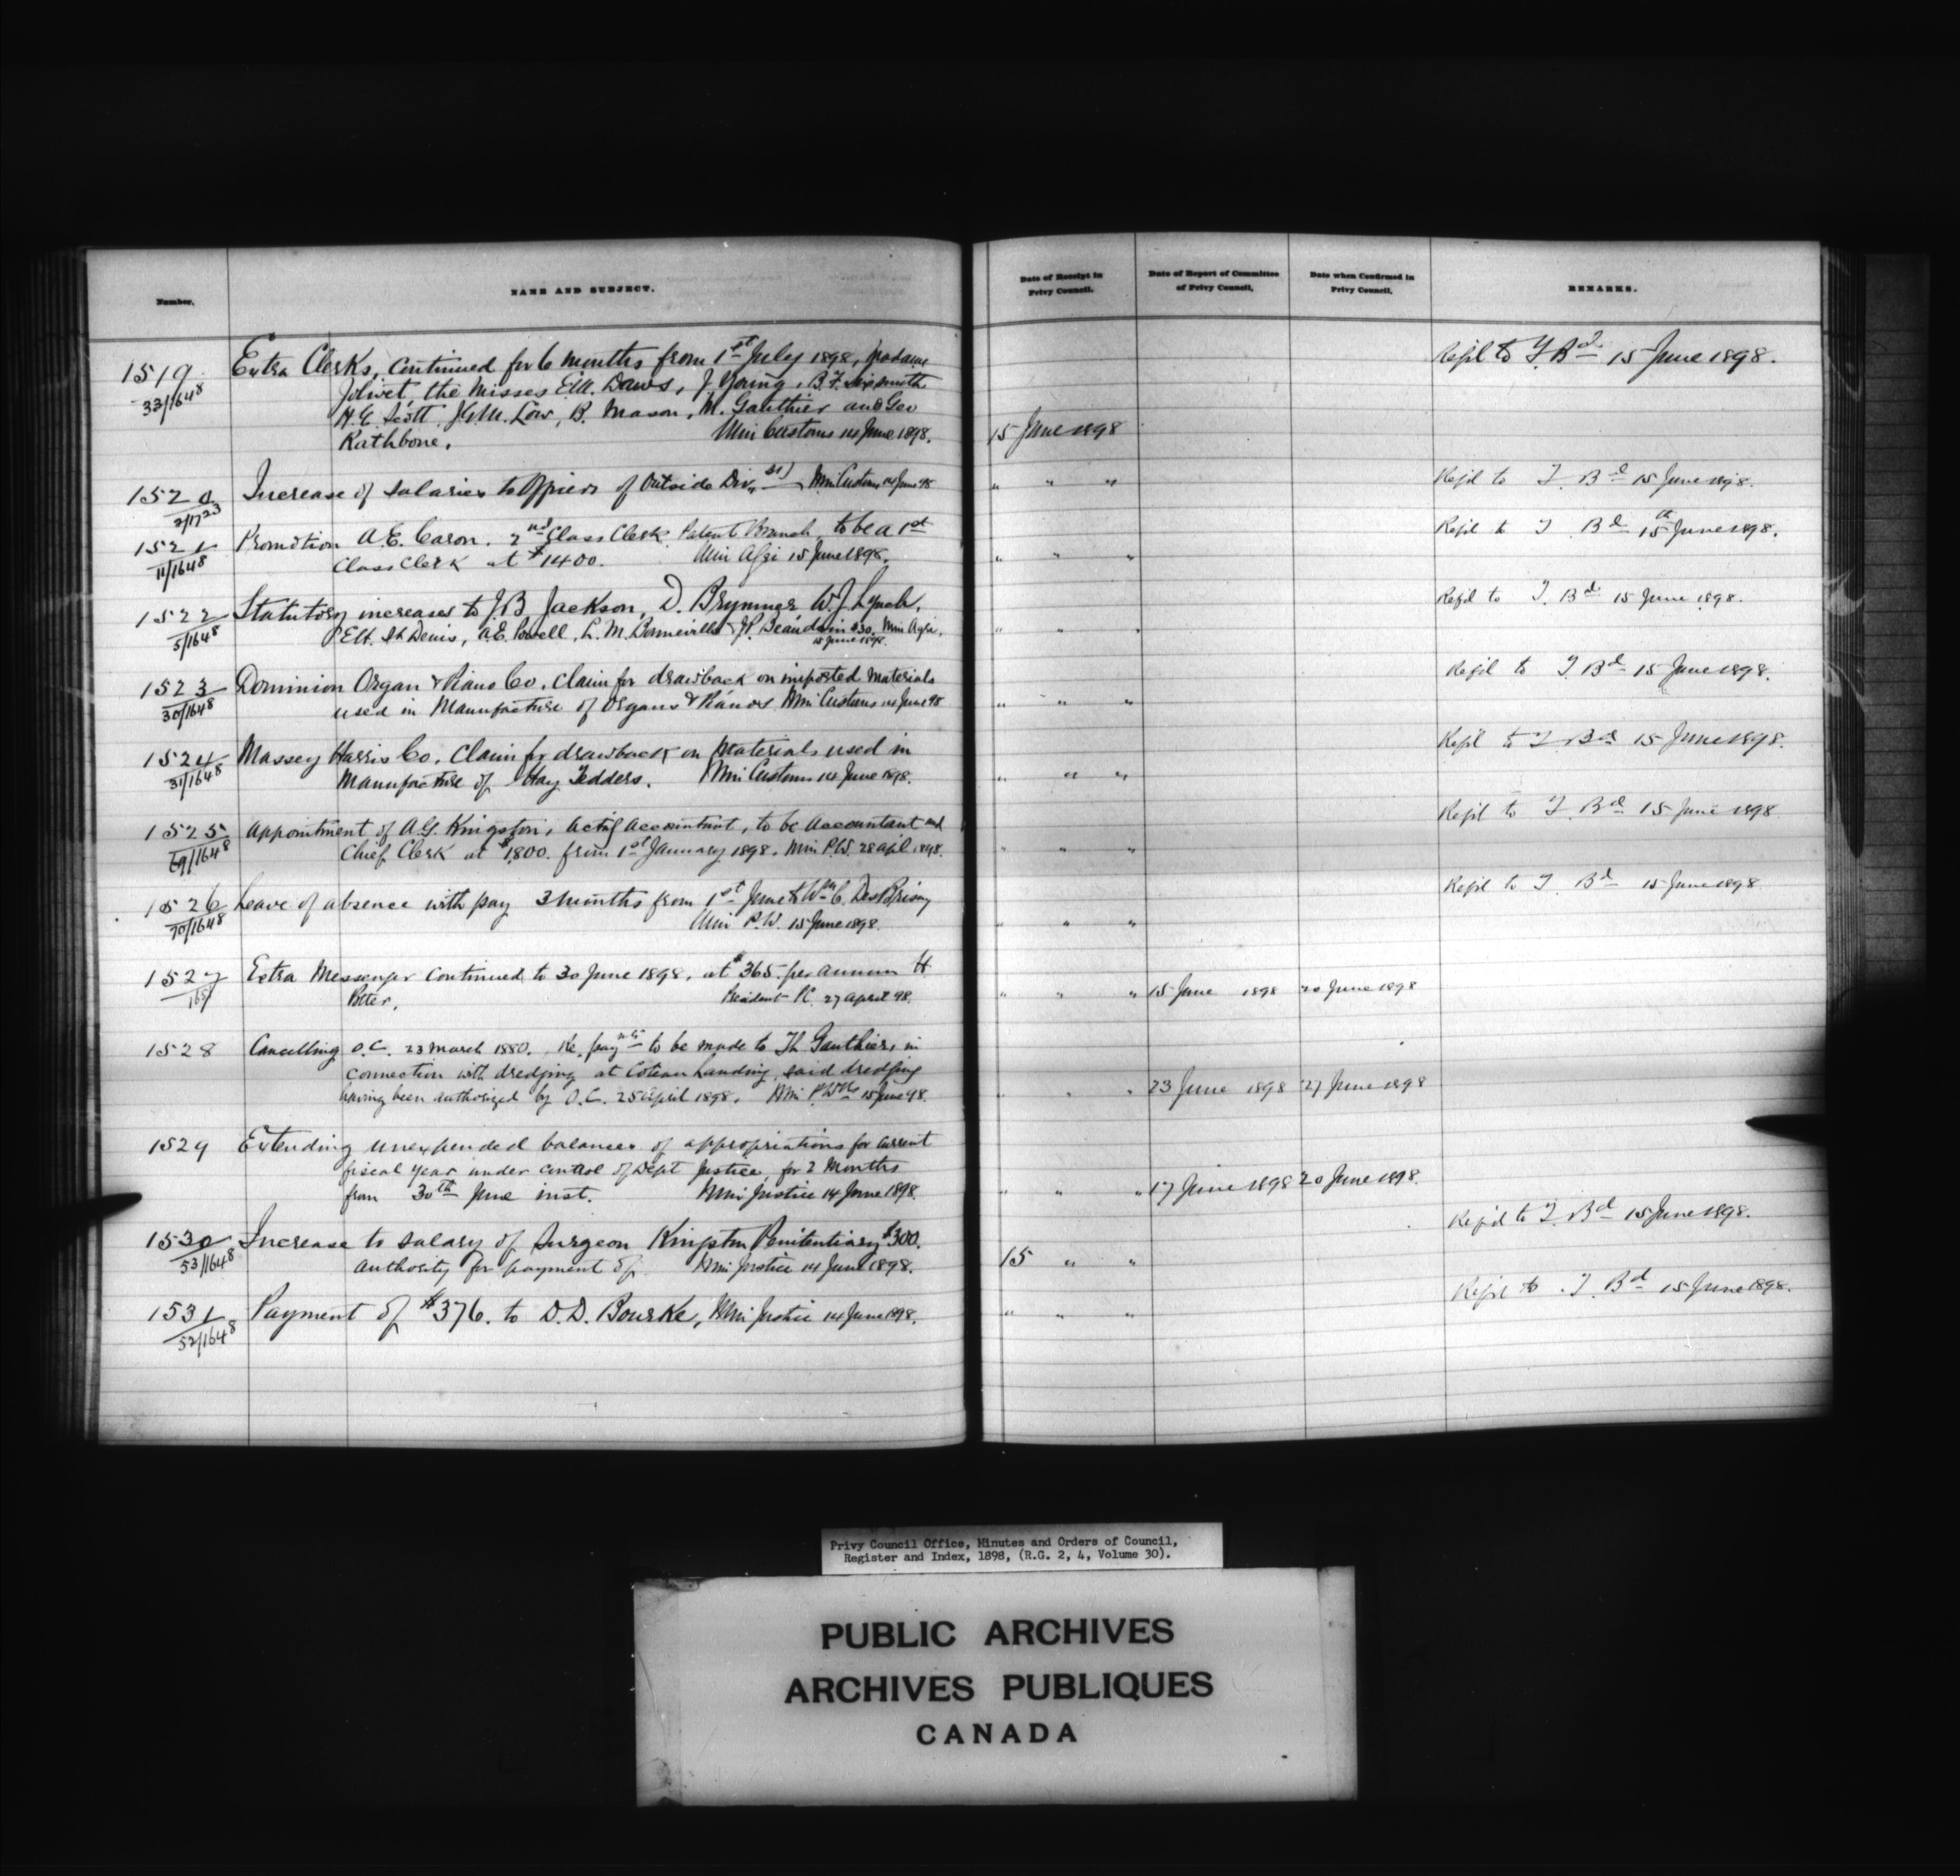 Number.
NAME AND SUBJECT.
Date of Receipt in
Privy Council.
Date of Report of Committee
of Privy Council.
Date when Confirmed in
Privy Council.
REMARKS.
1519 Extra Clerks, continued for 6 months from 1st July 1898, Madame Refd to T. Bd 15 June 1898.
33/1648 Jolivet, the Misses E.M. Daws, J Young, B.F.
H.E. Scott, J.G.M. Low, B. Mason, M. Gauthier and Geo
Rathbone. Min Customs 14 June 1898. 15 June 1898
1520 Increase of salaries to Officers of Outside Div, Min Customs 14 June 98 " " " Refd to T. Bd 15 June 1898.
2/1723
1521 Promotion A.E. Caron. 2nd Class Clerk Patent Branch, to be a 1st Refd to T. Bd 15th June 1898.
11/1648 Class Clerk at $1400. Min Agri 15 June 1898. " " "
1522 Statutory increases to J.B Jackson, D. Brymner W.J. Lynch, Refd to T. Bd 15 June 1898.
5/1648 St Denis, A.E. Powell, L.M. Bonneville & J.P. Beaudoin $30. Min Agri. " " "
15 June 1898.
1523 Dominion Organ & Piano Co. Claim for drawback on imported Materials Refd to T Bd 15 June 1898.
30/1648 used in Manufacture of Organs & Pianos Min Customs 14 June 98 " " "
1524 Massey Harris Co. Claim for drawback on Materials used in Refd to T. Bd 15 June 1898.
31/1648 Manufacture of Hay Tedders. Min Customs 14 June 1898. " " "
1525 Appointment of A.G. Kingston, Actg Accountant, to be Accountant and Refd to T. Bd 15 June 1898
69/1648 Chief Clerk at $1,800. from 1st January 1898. Min P.W. 28 Apl 1898. " " "
1526 Leave of absence with pay 3 months from 1st June to Wm C. DesBrisay Refd to T. Bd 15 June 1898
70/1648 Min P.W. 15 June 1898. " " "
1527 Extra Messenger continued to 30 June 1898, at $365. per annum H
Potter. President PC 27 April 98. " " " 15 June 1898 20 June 1898
1528 Cancelling O.C. 23 March 1880. Re paymts to be made to Th Gauthier, in
connection with dredging at Coteau Landing, said dredging
having been authorized by O.C. 25 April 1898. Min P.Wks 15 June 98. " " " 23 June 1898 27 June 1898
1529 Extending unexpended balances of appropriations for current
fiscal year under control of Dept Justice, for 2 Months
from 30th June inst. Min Justice 14 June 1898. " " " 17 June 1898 20 June 1898.
1530 Increase to salary of Surgeon Kingston Penitentiary $300. Refd to T. Bd 15 June 1898.
53/1648 Authority for payment of Min Justice 14 June 1898. 15 " "
1531 Payment of $376. to D.D. Bourke, Min Justice 14 June 1898. " " " Refd to T. Bd 15 June 1898.
52/1648
Privy Council Office, Minutes and Orders of Council,
Register and Index, 1898, (R.G. 2, 4, Volume 30).
PUBLIC ARCHIVES
ARCHIVES PUBLIQUES
CANADA